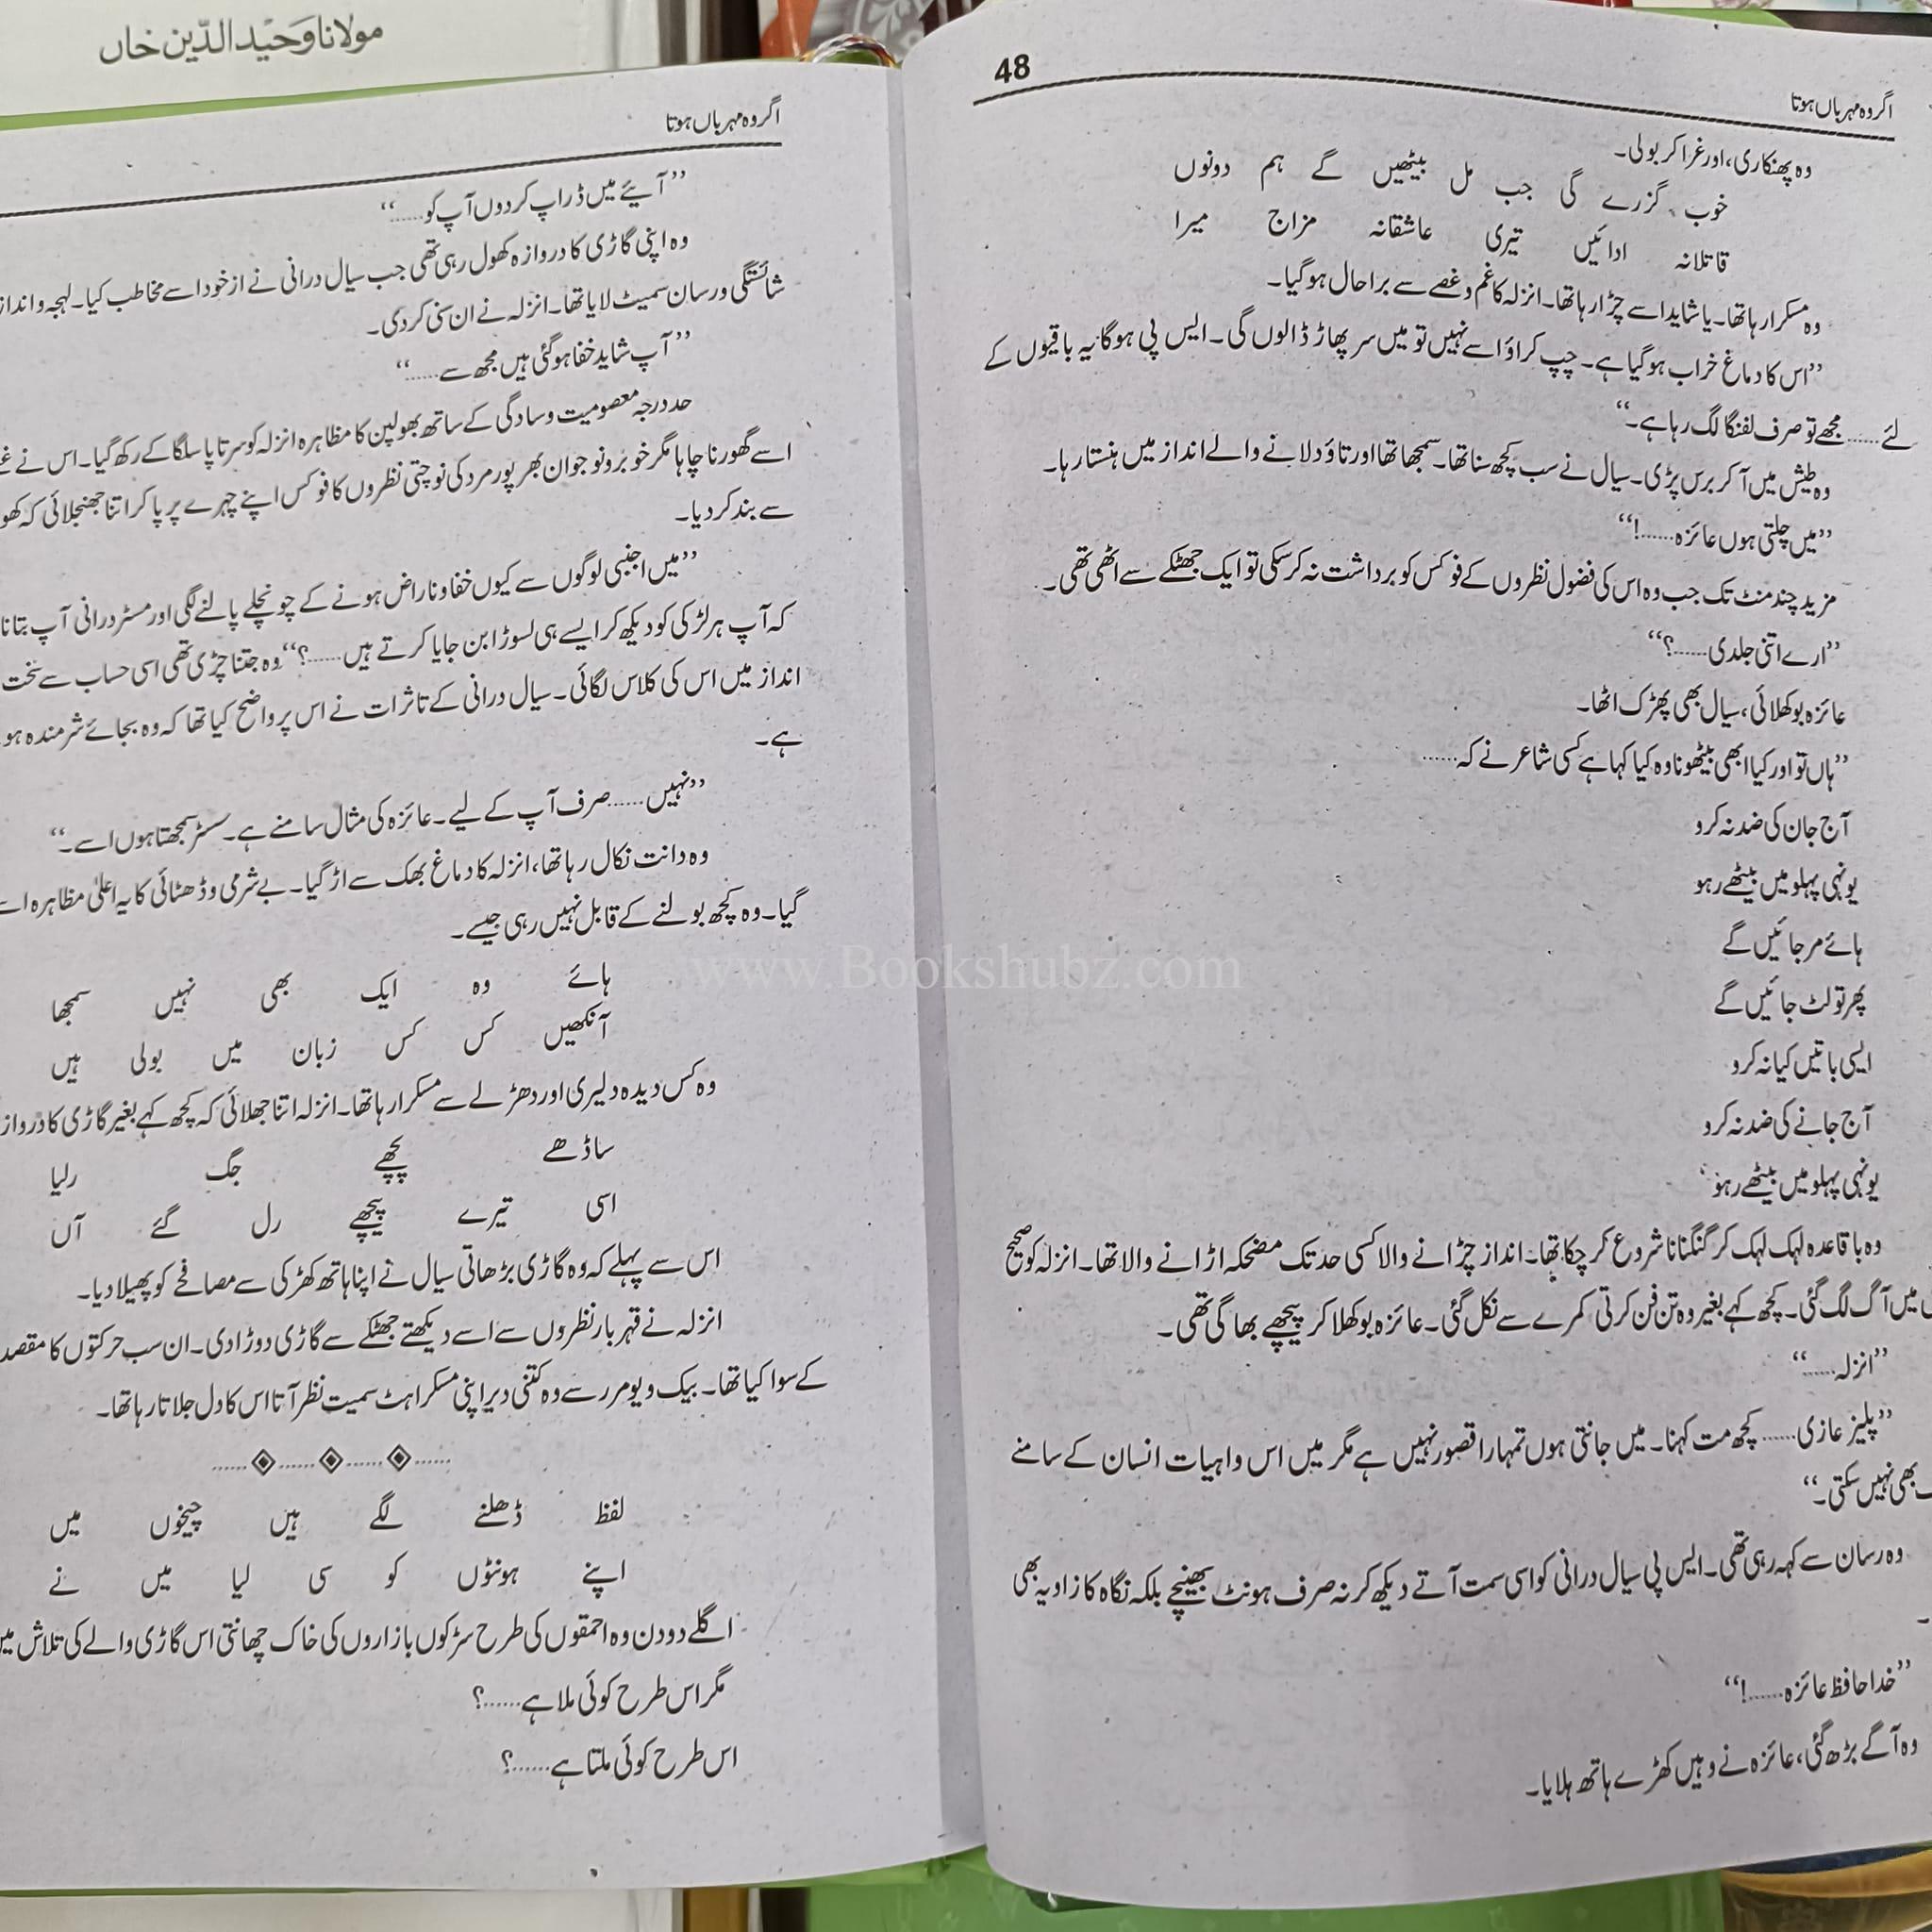 مولانا وحید الدّین خاں
48
اگر وہ مہرباں ہوتا
وہ پھنکاری، اور غرا کر بولی۔
خوب گزرے گی جب مل بیٹھیں گے ہم دونوں
قاتلانہ ادائیں تیری عاشقانہ مزاج میرا
وہ مسکرا رہا تھا۔ یا شاید اسے چڑا رہا تھا۔ انزلہ کا غم و غصے سے برا حال ہو گیا۔
’’اس کا دماغ خراب ہو گیا ہے۔ چپ کراؤ اسے نہیں تو میں سر پھاڑ ڈالوں گی۔ ایس پی ہوگا یہ باقیوں کے
لئے...... مجھے تو صرف لفنگا لگ رہا ہے۔‘‘
وہ طیش میں آ کر برس پڑی۔ سیال نے سب کچھ سنا تھا۔ سمجھا تھا اور تاؤ دلانے والے انداز میں ہنستا رہا۔
’’میں چلتی ہوں عائزہ......!‘‘
مزید چند منٹ تک جب وہ اس کی فضول نظروں کے فوکس کو برداشت نہ کر سکی تو ایک جھٹکے سے اٹھی تھی۔
’’ارے اتنی جلدی......؟‘‘
عائزہ بوکھلائی، سیال بھی پھڑک اٹھا۔
’’ہاں تو اور کیا ابھی بیٹھو نا وہ کیا کہا ہے کسی شاعر نے کہ......
آج جان کی ضد نہ کرو
یونہی پہلو میں بیٹھے رہو
ہائے مر جائیں گے
پھر تو لٹ جائیں گے
ایسی باتیں کیا نہ کرو
آج جانے کی ضد نہ کرو
یونہی پہلو میں بیٹھے رہو
وہ باقاعدہ لہک لہک کر گنگنانا شروع کر چکا تھا۔ انداز چڑانے والا کسی حد تک مضحکہ اڑانے والا تھا۔ انزلہ کو صحیح
میں آگ لگ گئی۔ کچھ کہے بغیر وہ تن فن کرتی کمرے سے نکل گئی۔ عائزہ بوکھلا کر پیچھے بھاگی تھی۔
’’انزلہ......‘‘
’’پلیز عازی...... کچھ مت کہنا۔ میں جانتی ہوں تمہارا قصور نہیں ہے مگر میں اس واہیات انسان کے سامنے
بھی نہیں سکتی۔‘‘
وہ رسان سے کہہ رہی تھی۔ ایس پی سیال درانی کو اسی سمت آتے دیکھ کر نہ صرف ہونٹ بھینچے بلکہ نگاہ کا زاویہ بھی
۔
’’خدا حافظ عائزہ......!‘‘
وہ آگے بڑھ گئی، عائزہ نے وہیں کھڑے ہاتھ ہلایا۔
اگر وہ مہرباں ہوتا
’’آیئے میں ڈراپ کردوں آپ کو......‘‘
وہ اپنی گاڑی کا دروازہ کھول رہی تھی جب سیال درانی نے از خود اسے مخاطب کیا۔ لہجہ و انداز
شائستگی ورسان سمیٹ لایا تھا۔ انزلہ نے ان سنی کر دی۔
’’آپ شاید خفا ہو گئی ہیں مجھ سے......‘‘
حد درجہ معصومیت و سادگی کے ساتھ بھولپن کا مظاہرہ انزلہ کو سرتاپا سلگا کے رکھ گیا۔ اس نے
اسے گھورنا چاہا مگر خوبرو نوجوان بھرپور مرد کی نوچتی نظروں کا فوکس اپنے چہرے پر پا کر اتنا جھنجلائی کہ
سے بند کر دیا۔
’’میں اجنبی لوگوں سے کیوں خفا و ناراض ہونے کے چونچلے پالنے لگی اور مسٹر درانی آپ بتانا
کہ آپ ہر لڑکی کو دیکھ کر ایسے ہی لسوڑا بن جایا کرتے ہیں......؟‘‘ وہ جتنا چڑی تھی اسی حساب سے سخت
انداز میں اس کی کلاس لگائی۔ سیال درانی کے تاثرات نے اس پر واضح کیا تھا کہ وہ بجائے شرمندہ
ہے۔
’’نہیں...... صرف آپ کے لیے۔ عائزہ کی مثال سامنے ہے۔ سسٹر سمجھتا ہوں اسے۔‘‘
وہ دانت نکال رہا تھا، انزلہ کا دماغ بھک سے اڑ گیا۔ بے شرمی و ڈھٹائی کا یہ اعلیٰ مظاہرہ
گیا۔ وہ کچھ بولنے کے قابل نہیں رہی جیسے۔
ہائے وہ ایک بھی نہیں سمجھا
آنکھیں کس کس زبان میں بولی ہیں
وہ کس دیدہ دلیری اور دھڑلے سے مسکرا رہا تھا۔ انزلہ اتنا جھلائی کہ کچھ کہے بغیر گاڑی کا
ساڈھے پچھے جگ رلیا
اسی تیرے پیچھے رل گئے آں
اس سے پہلے کہ وہ گاڑی بڑھاتی سیال نے اپنا ہاتھ کھڑکی سے مصافحے کو پھیلا دیا۔
انزلہ نے قہر بار نظروں سے اسے دیکھتے جھٹکے سے گاڑی دوڑا دی۔ ان سب حرکتوں کا مقصد
کے سوا کیا تھا۔ بیک ویو مرر سے وہ کتنی دیر اپنی مسکراہٹ سمیت نظر آتا اس کا دل جلاتا رہا تھا۔
لفظ ڈھلنے لگے ہیں چیخوں میں
اپنے ہونٹوں کو سی لیا میں نے
اگلے دو دن وہ احمقوں کی طرح سڑکوں بازاروں کی خاک چھانتی اس گاڑی والے کی تلاش
مگر اس طرح کوئی ملا ہے......؟
اس طرح کوئی ملتا ہے......؟
www.Bookshubz.com